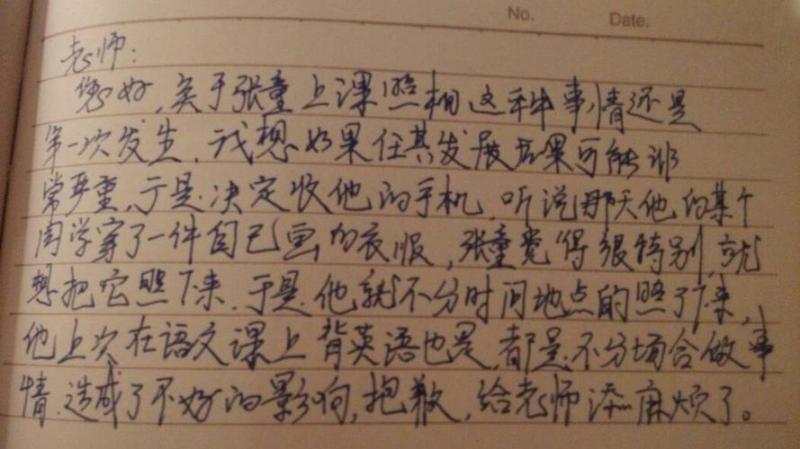 No. Date.
老师:
您好,关于张童上课照相这种事情还是
第一次发生,我想如果任其发展后果可能非
常严重,于是决定收他的手机,听说那天他的某个
同学穿了一件自己画的衣服,张童觉得很特别,就
想把它照下来.于是他就不分时间地点的照了下来,
他上次在语文课上背英语也是,都是不分场合做事
情.造成了不好的影响,抱歉,给老师添麻烦了。